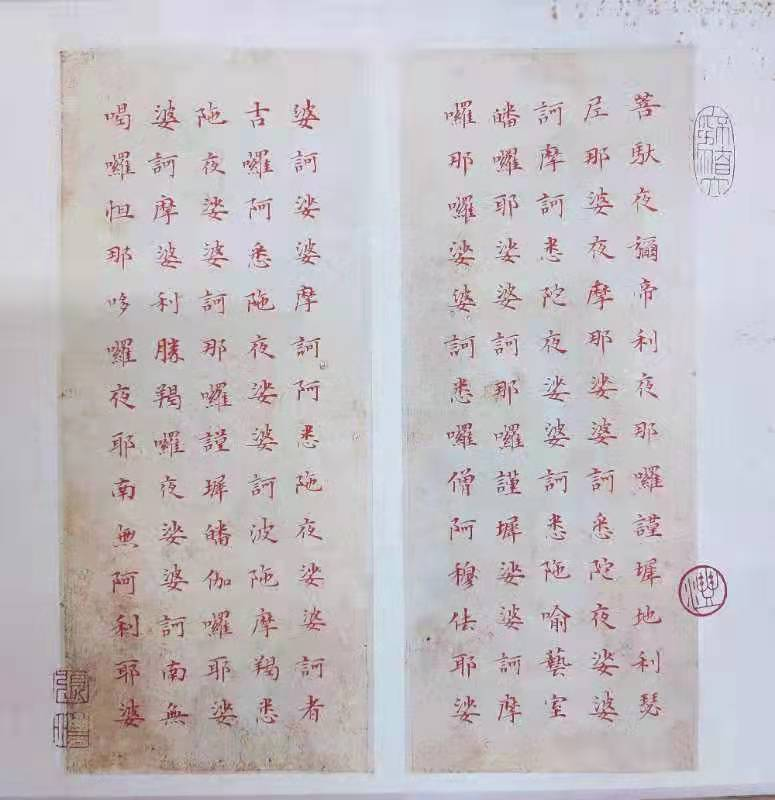 菩馱夜彌帝利夜那囉謹墀地利瑟
尼那婆夜摩那娑婆訶悉陀夜娑婆
訶摩訶悉陀夜娑婆訶悉陁喻藝室
皤囉耶娑婆訶那囉謹墀娑婆訶摩
囉那囉娑婆訶悉囉僧阿穆佉耶娑
婆訶娑婆摩訶阿悉陁夜娑婆訶者
吉囉阿悉陁夜娑婆訶波陁摩羯悉
陁夜娑婆訶那囉謹墀皤伽囉耶娑
婆訶摩婆利勝羯囉夜娑婆訶南無
喝囉怛那哆囉夜耶南無阿利耶婆